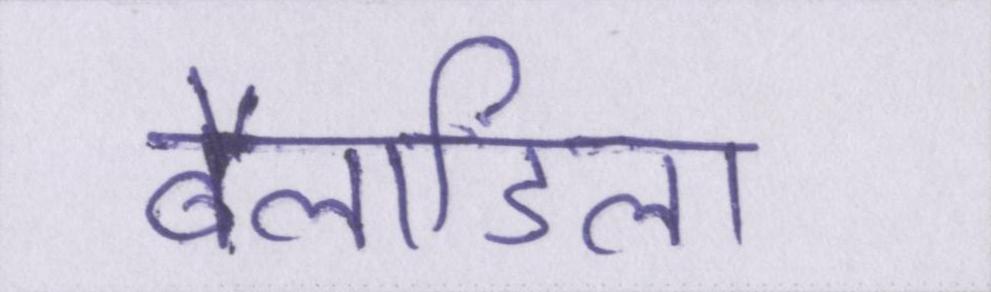 बैलाडिला